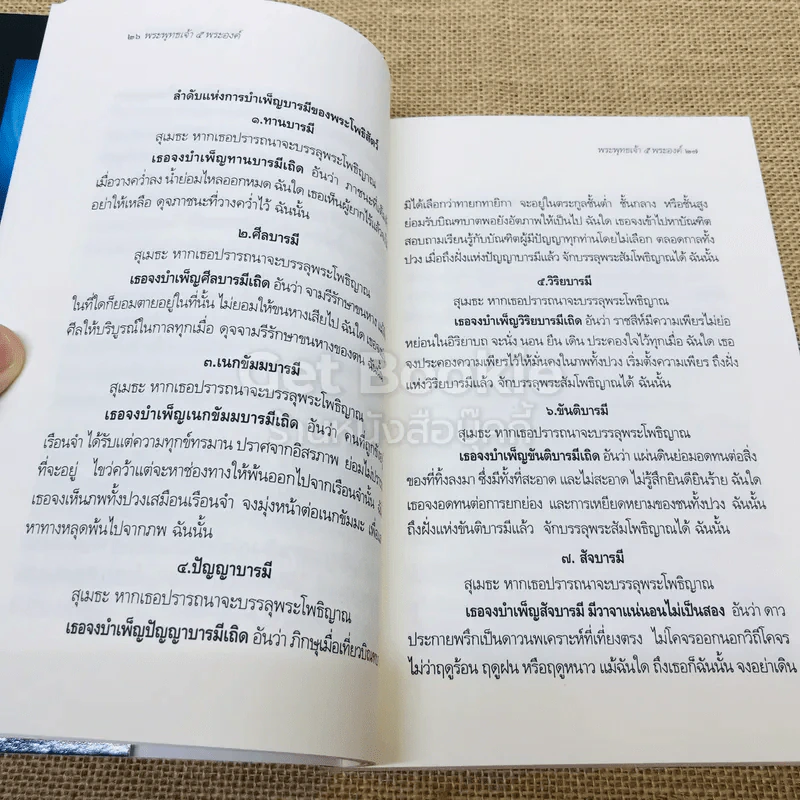 ๒๖ พระพุทธเจ้า ๕ พระองค์
ลำดับแห่งการบำเพ็ญบารมีของพระโพธิสัตว์
๑.ทานบารมี
สุเมธะ หากเธอปรารถนาจะบรรลุพระโพธิญาณ
เธอจงบำเพ็ญทานบารมีเถิด อันว่า ภาชนะที่เต็ม
เมื่อวางคว่ำลง น้ำย่อมไหลออกหมด ฉันใด เธอเห็นผู้ยากไร้แล้ว
อย่าให้เหลือ ดุจภาชนะที่วางคว่ำไว้ ฉันนั้น
๒.ศีลบารมี
สุเมธะ หากเธอปรารถนาจะบรรลุพระโพธิญาณ
เธอจงบำเพ็ญศีลบารมีเถิด อันว่า จามรีรักษาขนหาง
ในที่ใดก็ยอมตายอยู่ในที่นั้น ไม่ยอมให้ขนหางเสียไป ฉันใด เธอ
ศีลให้บริบูรณ์ในกาลทุกเมื่อ ดุจจามรีรักษาขนหางของตน ฉันนั้น
๓.เนกขัมมบารมี
สุเมธะ หากเธอปรารถนาจะบรรลุพระโพธิญาณ
เธอจงบำเพ็ญเนกขัมมบารมีเถิด อันว่า คนที่ถูกขัง
เรือนจำ ได้รับแต่ความทุกข์ทรมาน ปราศจากอิสรภาพ ย่อมไม่
ที่จะอยู่ ไขว่คว้าแต่จะหาช่องทางให้พ้นออกไปจากเรือนจำนั้น
เธอจงเห็นภพทั้งปวงเสมือนเรือนจำ จงมุ่งหน้าต่อเนกขัมมะ
หาทางหลุดพ้นไปจากภพ ฉันนั้น
๔.ปัญญาบารมี
สุเมธะ หากเธอปรารถนาจะบรรลุพระโพธิญาณ
เธอจงบำเพ็ญปัญญาบารมีเถิด อันว่า ภิกษุเมื่อเที่ยวบิณฑบาต
พระพุทธเจ้า ๕ พระองค์ ๒๗
มิได้เลือกว่าทายกทายิกา จะอยู่ในตระกูลชั้นต่ำ ชั้นกลาง หรือชั้นสูง
ย่อมรับบิณฑบาตพอยังอัตภาพให้เป็นไป ฉันใด เธอจงเข้าไปหาบัณฑิต
สอบถามเรียนรู้กับบัณฑิตผู้มีปัญญาทุกท่านโดยไม่เลือก ตลอดกาลทั้ง
ปวง เมื่อถึงฝั่งแห่งปัญญาบารมีแล้ว จักบรรลุพระสัมโพธิญาณได้ ฉันนั้น
๕.วิริยบารมี
สุเมธะ หากเธอปรารถนาจะบรรลุพระโพธิญาณ
เธอจงบำเพ็ญวิริยบารมีเถิด อันว่า ราชสีห์มีความเพียรไม่ย่อ
หย่อนในอิริยาบถ จะนั่ง นอน ยืน เดิน ประคองใจไว้ทุกเมื่อ ฉันใด เธอ
จงประคองความเพียรไว้ให้มั่นคงในภพทั้งปวง เริ่มตั้งความเพียร ถึงฝั่ง
แห่งวิริยบารมีแล้ว จักบรรลุพระสัมโพธิญาณได้ ฉันนั้น
๖.ขันติบารมี
สุเมธะ หากเธอปรารถนาจะบรรลุพระโพธิญาณ
เธอจงบำเพ็ญขันติบารมีเถิด อันว่า แผ่นดินย่อมอดทนต่อสิ่ง
ของที่ทิ้งลงมา ซึ่งมีทั้งที่สะอาด และไม่สะอาด ไม่รู้สึกยินดียินร้าย ฉันใด
เธอจงอดทนต่อการยกย่อง และการเหยียดหยามของชนทั้งปวง ฉันนั้น
ถึงฝั่งแห่งขันติบารมีแล้ว จักบรรลุพระสัมโพธิญาณได้ ฉันนั้น
๗. สัจบารมี
สุเมธะ หากเธอปรารถนาจะบรรลุพระโพธิญาณ
เธอจงบำเพ็ญสัจบารมี มีวาจาแน่นอนไม่เป็นสอง อันว่า ดาว
ประกายพรึกเป็นดาวนพเคราะห์ที่เที่ยงตรง ไม่โคจรออกนอกวิถีโคจร
ไม่ว่าฤดูร้อน ฤดูฝน หรือฤดูหนาว แม้ฉันใด ถึงเธอก็ฉันนั้น จงอย่าเดิน
Get Bookie
ร้านหนังสือบุ๊คกี้